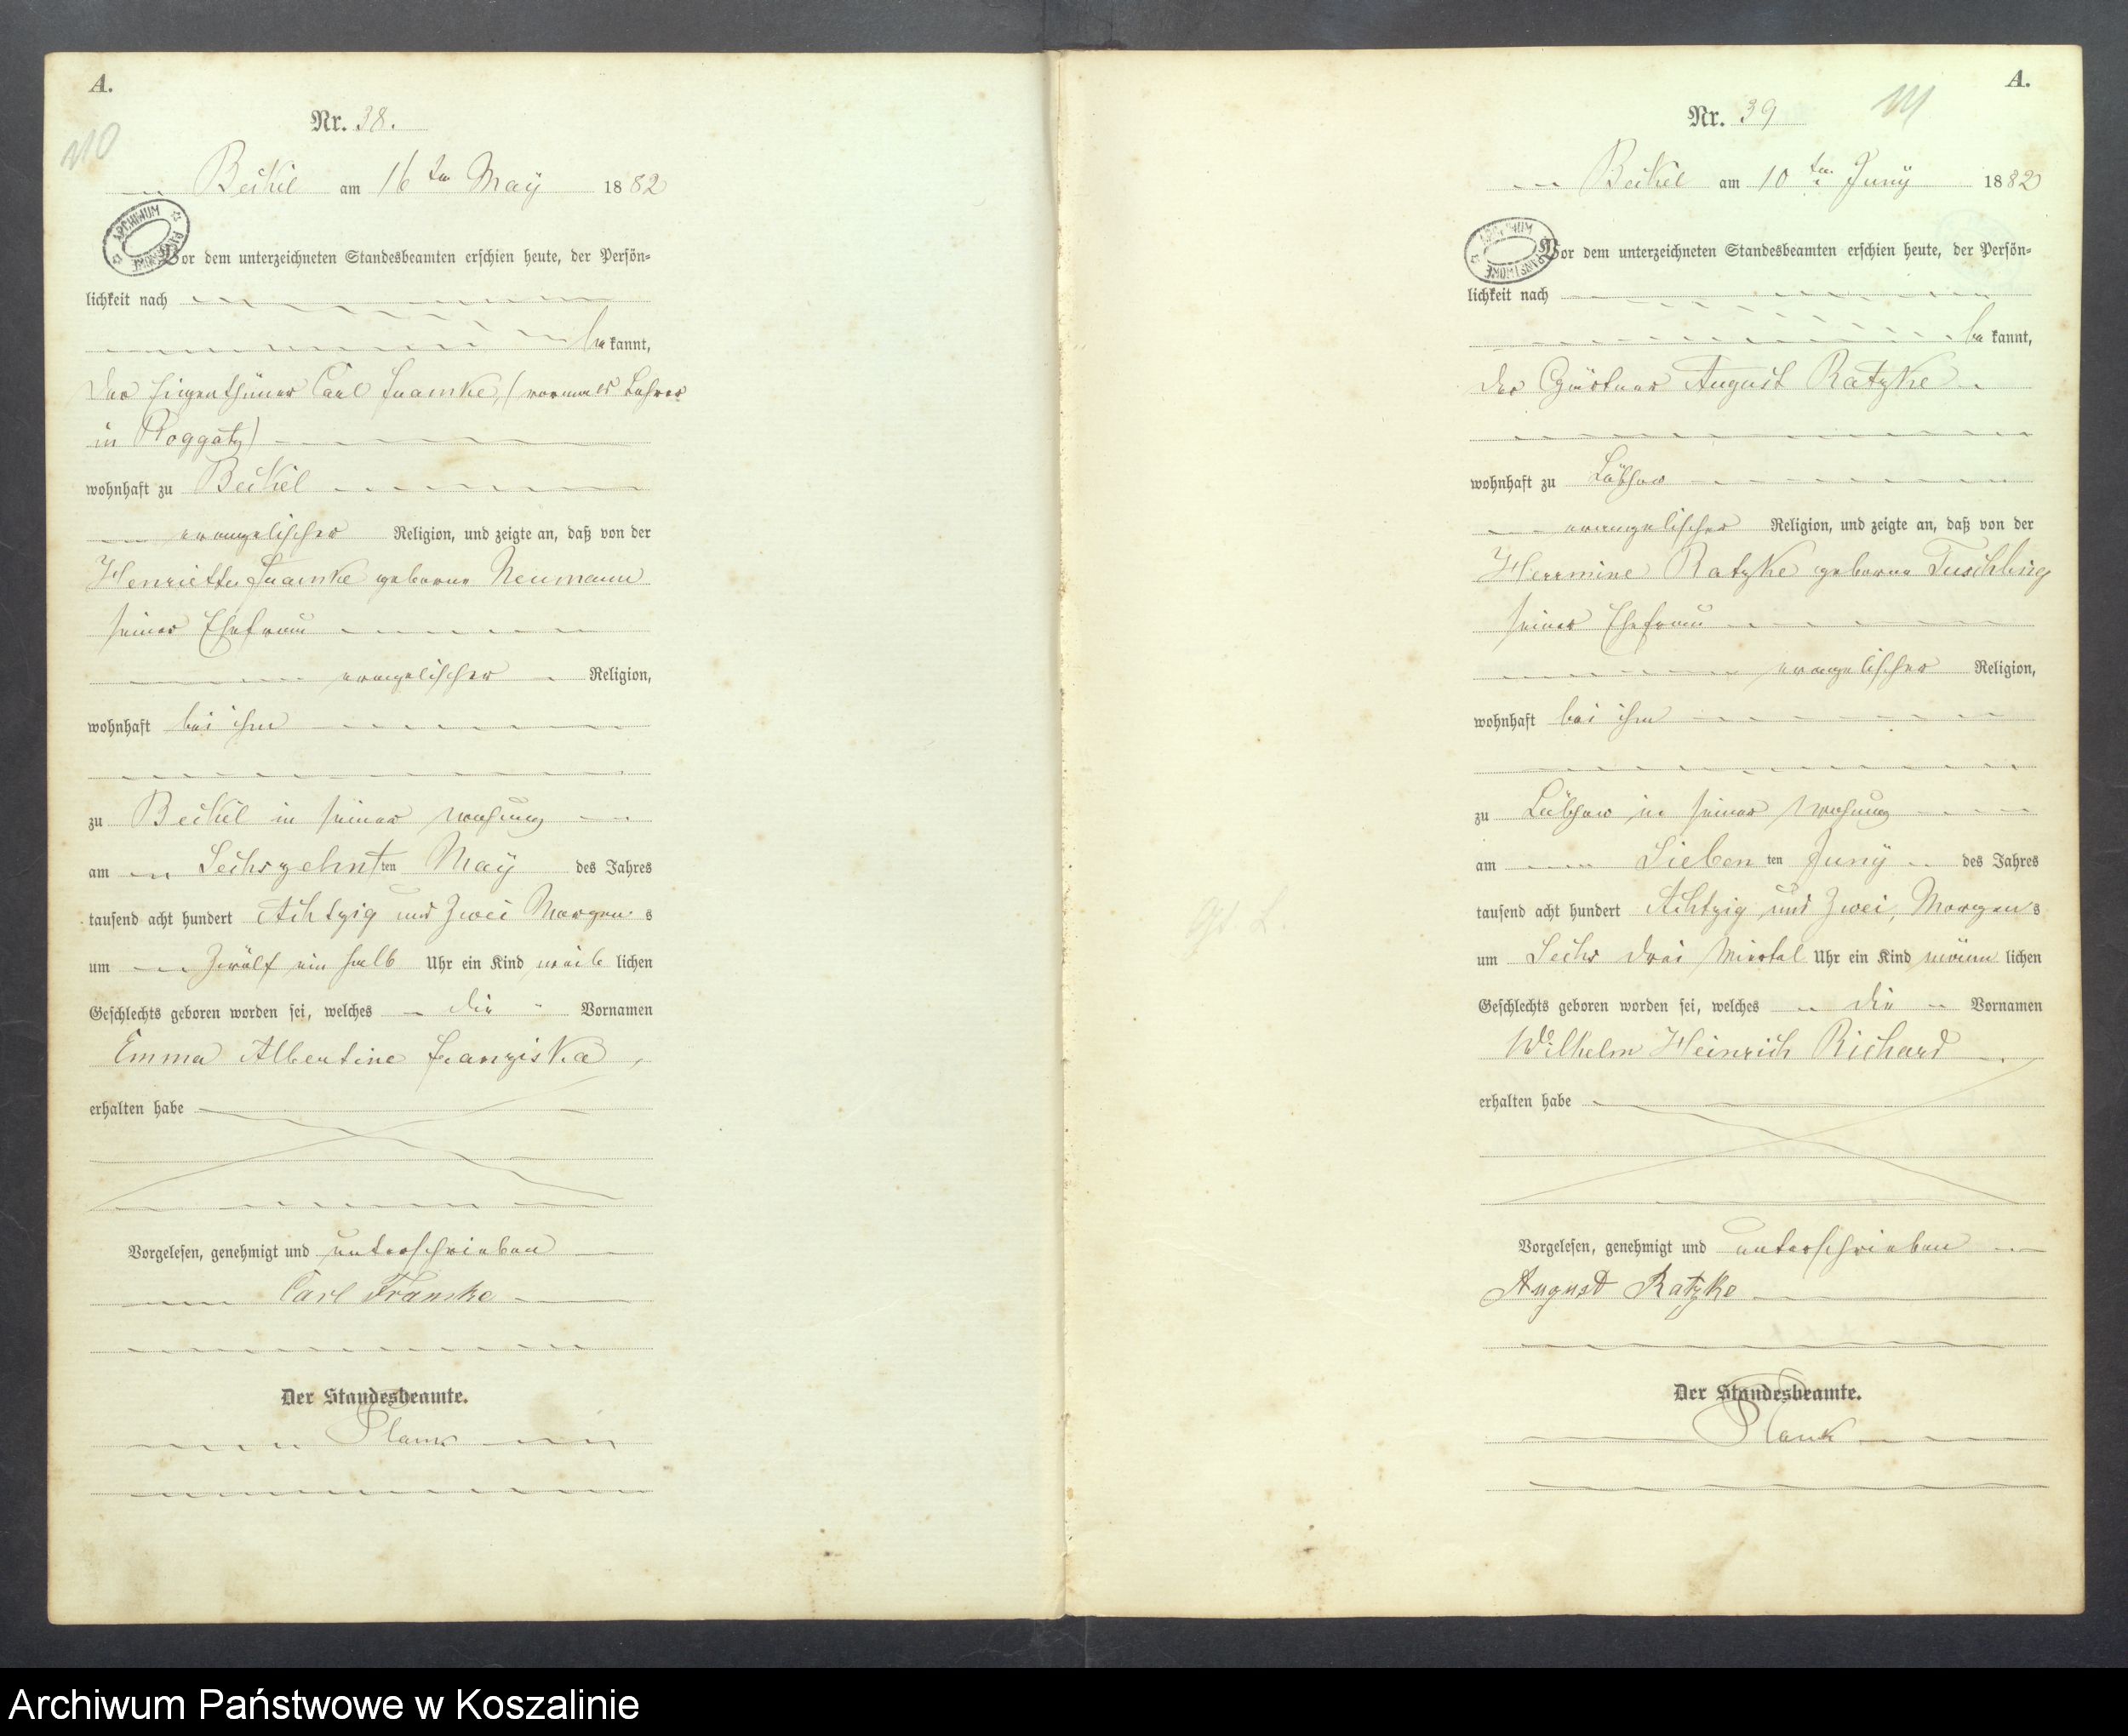 A.
Nr. 38.
110
Beckel am 16 ten May 1882
ARCHIWUM
Vor dem unterzeichneten Standesbeamten erschien heute, der Persön-
lichkeit nach
be kannt,
der Eigenthümer Carl Framke, (vormals Lehrer
in Roggatz)
wohnhaft zu Beckel
evangelischer Religion, und zeigte an, daß von der
Henriette Framke geborne Neumann
seiner Ehefrau
evangelischer Religion,
wohnhaft bei ihm
zu Beckel in seiner Wohnung
am Sechszehnt ten May des Jahres
tausend acht hundert Achtzig und Zwei Morgens
um Zwölf ein halb Uhr ein Kind weib lichen
Geschlechts geboren worden sei, welches die Vornamen
Emma Albertine Franziska
erhalten habe
Vorgelesen, genehmigt und unterschrieben
Carl Framke
Der Standesbeamte.
Plank
A.
Nr. 39
111
Beckel am 10 ten Juny 1882
ARCHIWUM PAŃSTWOWE
Vor dem unterzeichneten Standesbeamten erschien heute, der Persön-
lichkeit nach
be kannt,
der Gärtner August Ratzke
wohnhaft zu Lübzow
evangelischer Religion, und zeigte an, daß von der
Hermine Ratzke geborne Tuschling
seiner Ehefrau
evangelischer Religion,
wohnhaft bei ihm
zu Lübzow in seiner Wohnung
am Sieben ten Juny des Jahres
tausend acht hundert Achtzig und Zwei, Morgens
um Sechs drei Viertel Uhr ein Kind männ lichen
Geschlechts geboren worden sei, welches die Vornamen
Wilhelm Heinrich Richard
erhalten habe
Vorgelesen, genehmigt und unterschrieben
August Ratzke
Der Standesbeamte.
Plank
Archiwum Państwowe w Koszalinie